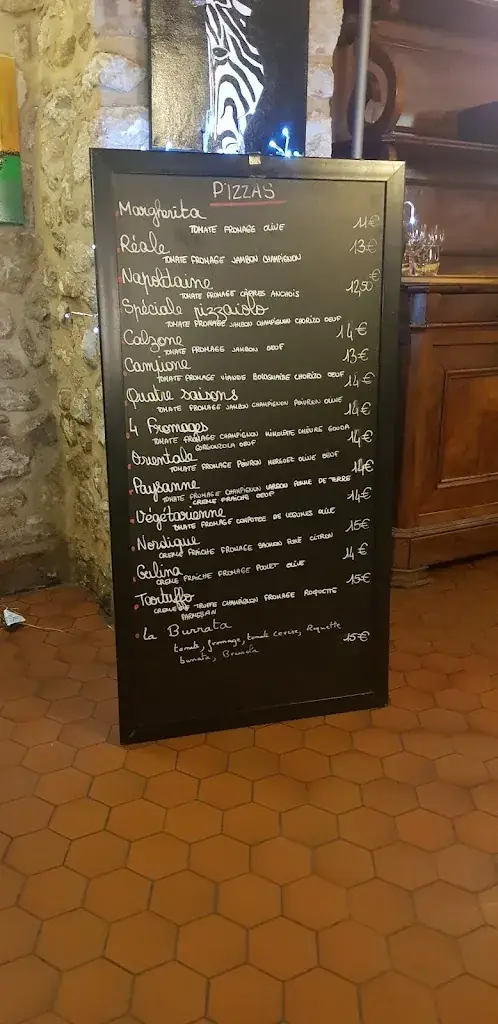 PIZZAS
Margherita
TOMATE FROMAGE OLIVE 11€
Réale
TOMATE FROMAGE JAMBON CHAMPIGNON 13€
Napolitaine
TOMATE FROMAGE CÂPRES ANCHOIS 12,50€
Spéciale pizzaiolo
TOMATE FROMAGE JAMBON CHAMPIGNON CHORIZO OEUF 14€
Calzone
TOMATE FROMAGE JAMBON OEUF 13€
Campione
TOMATE FROMAGE VIANDE BOLOGNAISE CHORIZO OEUF 14€
Quatre saisons
TOMATE FROMAGE JAMBON CHAMPIGNON POIVRON OLIVE 14€
4 Fromages
TOMATE FROMAGE CHAMPIGNON MIMOLETTE CHEVRE GOUDA
GORGONZOLA OEUF 14€
Orientale
TOMATE FROMAGE POIVRON MERGUEZ OLIVE OEUF 14€
Paysanne
TOMATE FROMAGE CHAMPIGNON LARDON POMME DE TERRE
CREME FRAICHE OEUF 14€
Végétarienne
TOMATE FROMAGE COMPOTEE DE LEGUMES OLIVE 15€
Nordique
CREME FRAICHE FROMAGE SAUMON FUMÉ CITRON 14€
Galina
CREME FRAICHE FROMAGE POULET OLIVE 15€
Tartuffo
CREME TRUFFE CHAMPIGNON FROMAGE ROQUETTE
PARMESAN
La Burrata
tomate, fromage, tomate cerise, Roquette 15€
burrata, Bresaola